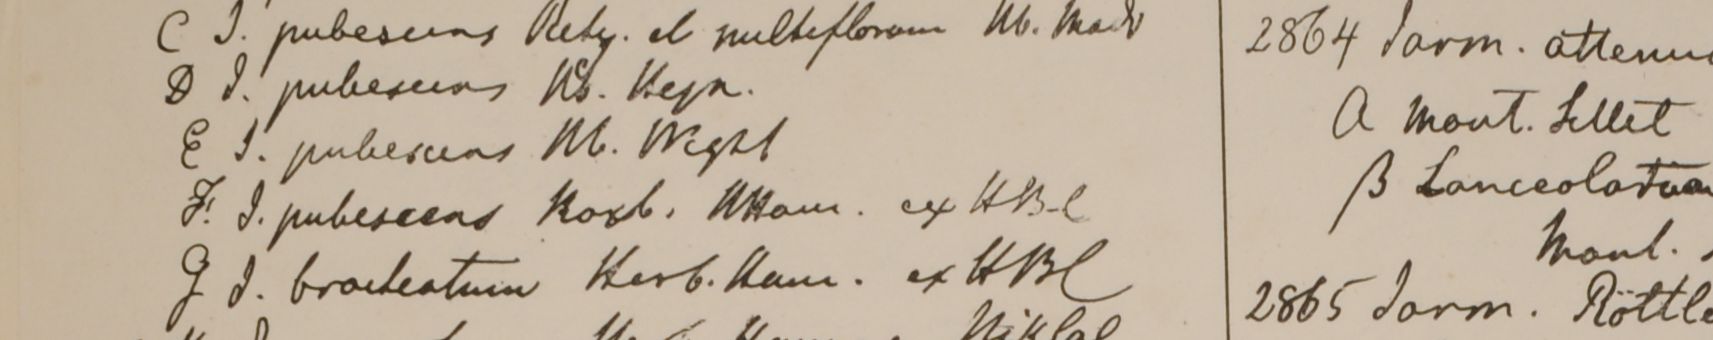 C J. pubescens Retz. et multiflorum Hb. Madr
D J. pubescens Hb. Heyn.
E J. pubescens Hb. Wight
F. J. pubescens Roxb. HHam. ex HBC
G J. bracteatum Herb. Ham. ex HBC
2864 Jasm. attenua
A Mont. Sillet
B Lanceolatum
Mont.
2865 Jasm. Röttle